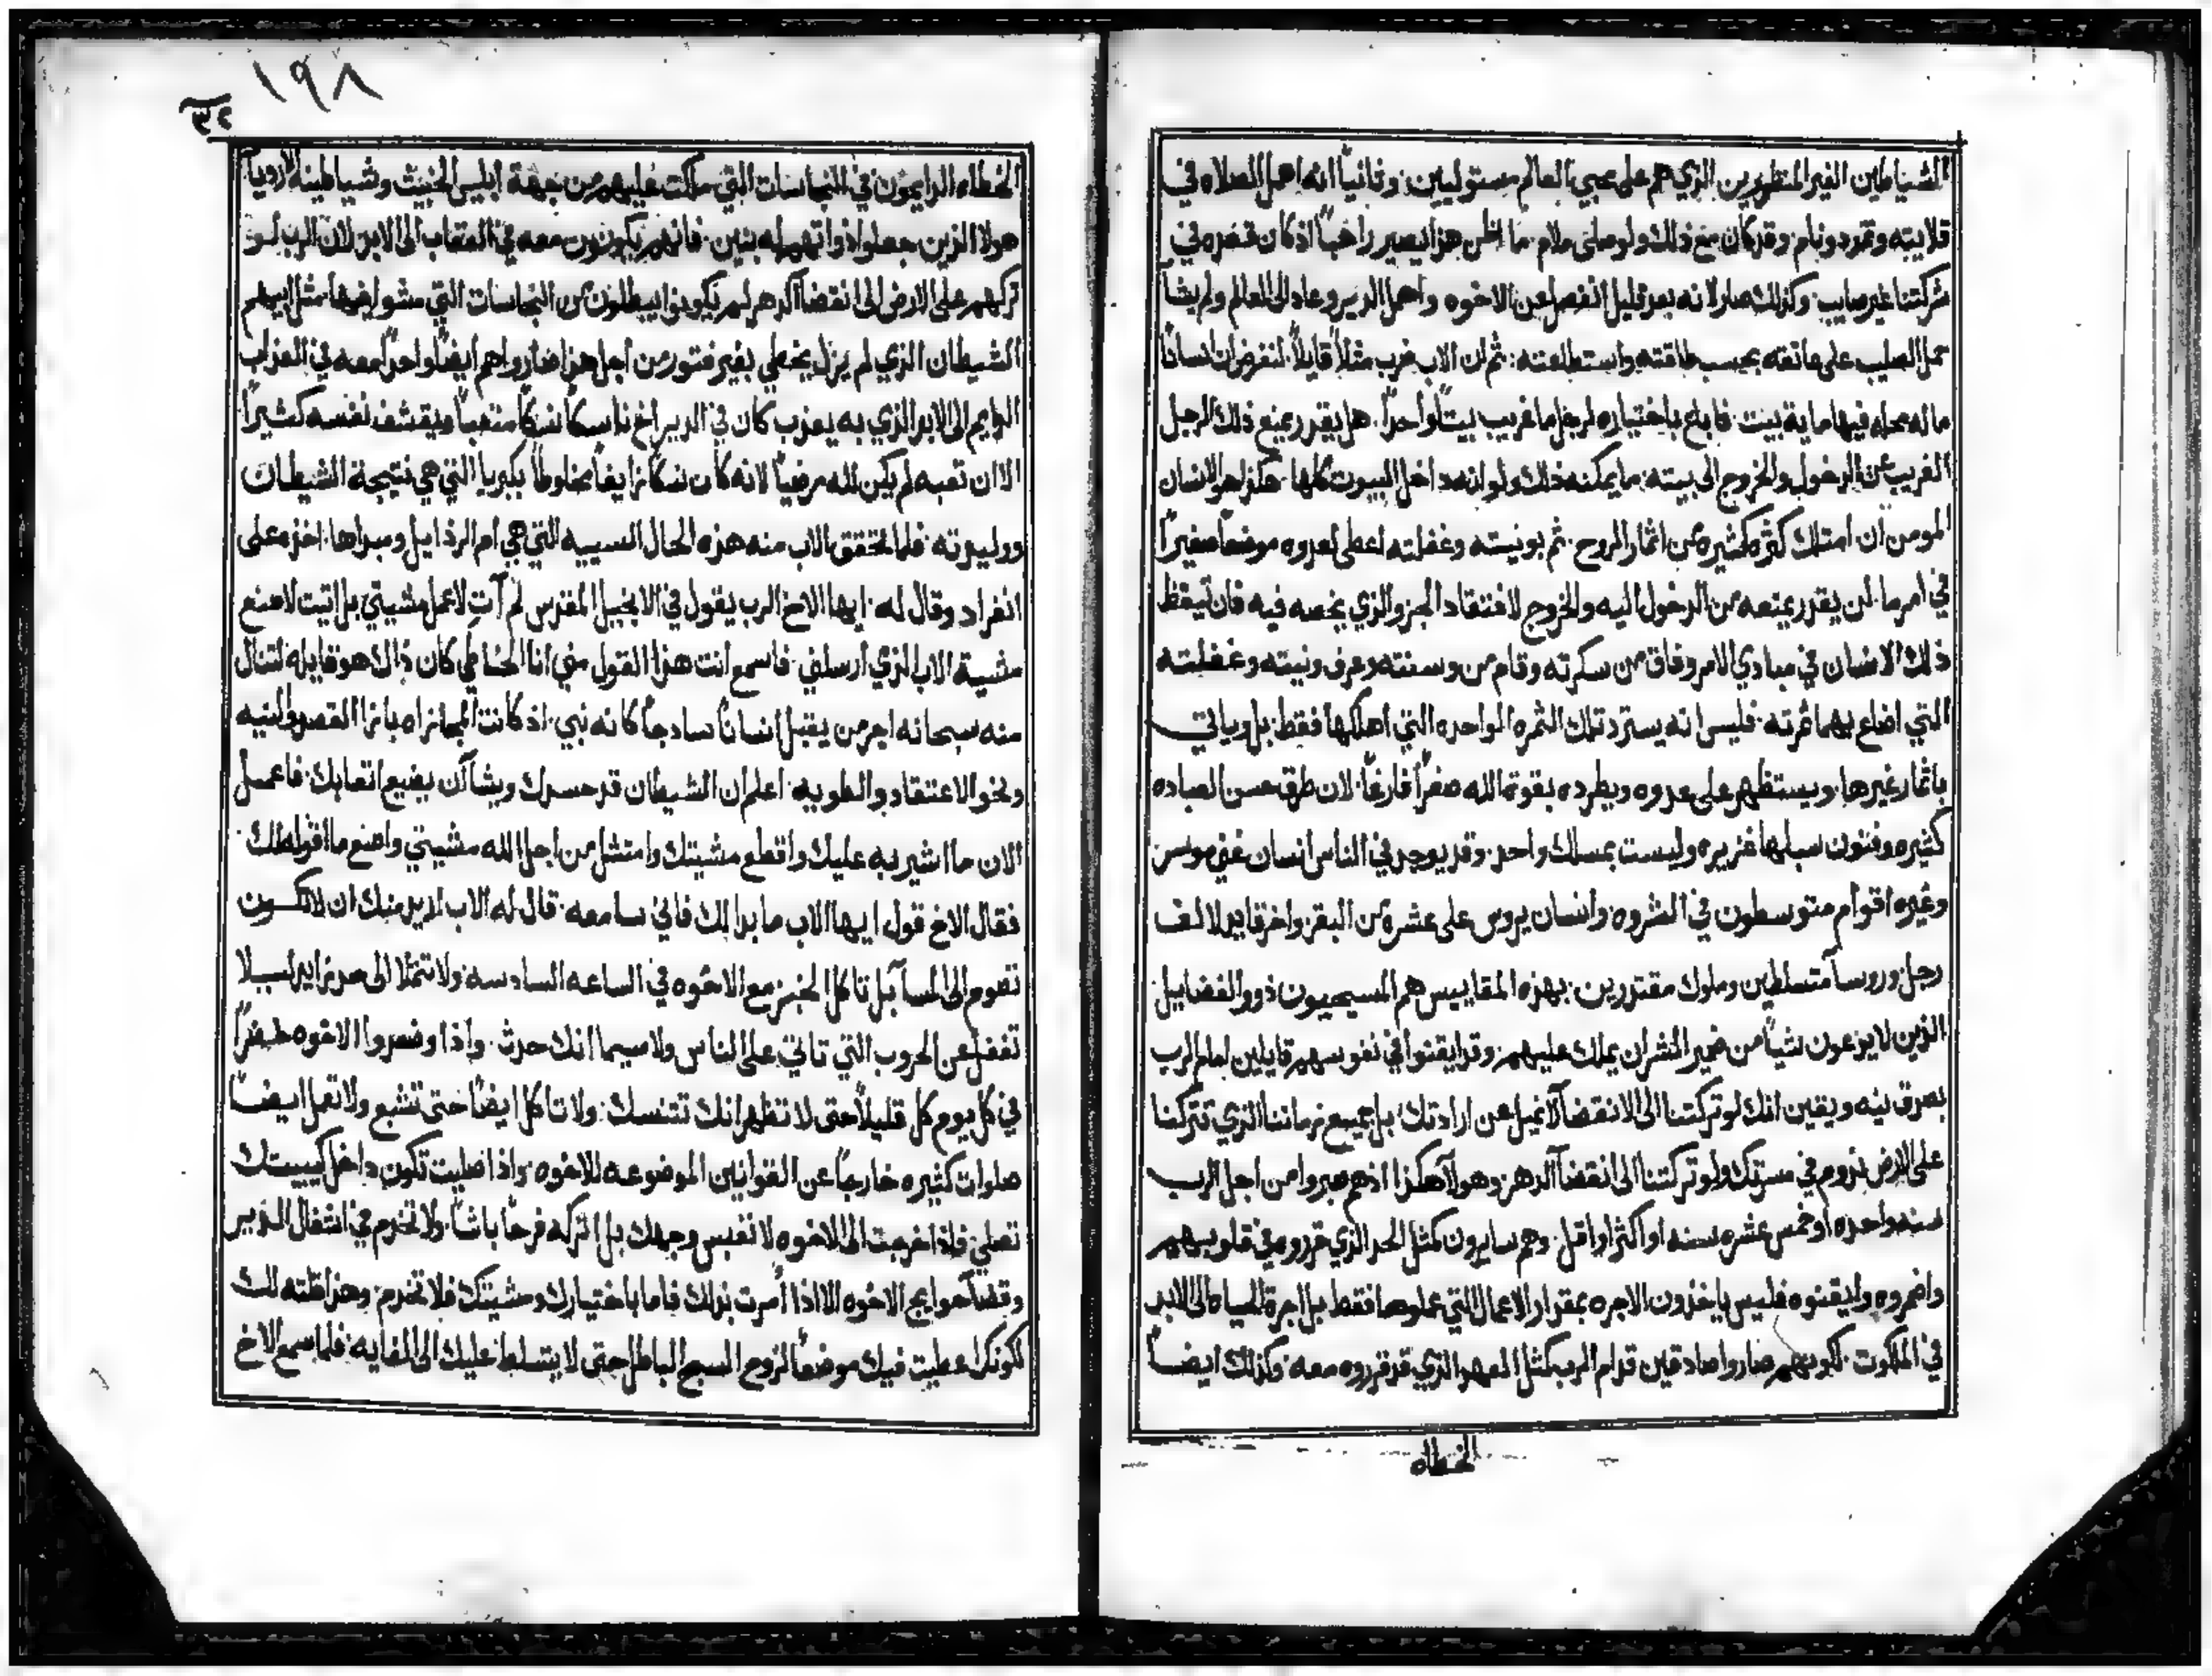 الشياطين الغير المنظورين الذي هم على محبي العالم مستوليين. وثانياً انه اهمل الصلاه في
قلايته وتمرد ونام وقد كان مع ذلك ولو صلى ملام. ما اظن هذا يصير راهباً اذ كان قصده في
شركتنا غير صايب. وكذلك صار لانه بعد قليل انفصل عن الاخوه واهمل الدير وعاد الى العالم ولم يشا
حمل الصليب على عاتقه بحسب طاقته واستطاعته: ثم ان الاب ضرب مثلاً قايلاً. لنفرض ان انساناً
ما له محله فيها ماية بيت. فاباع باختياره لرجل ما غريب بيتاً واحداً. هل يقدر يمنع ذلك الرجل
الغريب عن الدخول والخروج الى بيته. ما يمكنه ذلك ولو انه داخل البيوت كلها. هكذا هو الانسان
المومن ان امتلك كثره كثيره من اثمار الروح. ثم بونيته وغفلته اعطى لعدوه موضعاً صغيراً
في امر ما. لن يقدر يمنعه من الدخول اليه والخروج لافتقاد الجزو الذي يخصه فيه فان تيقظ
ذلك الانسان في مبادي الامر وفاق من سكرته وقام من وسنته وعرف ونيته وغفلته
التي اضاع بهما ثمرته. فليس انه يسترد تلك الثمره الواحده التي اهلكها فقط. بل وياتي
باثمار غيرها. ويستظهر على عدوه ويطرده بقوة الله صفراً فارغاً. لان طرق حسن العباده
كثيره وفنون سبلها غزيره وليست بمسلك واحد. وقد يوجد في الناس انسان غني موسر
وغيره اقوام متوسطون في الثروه. وانسان يروس على عشره من البقر. واخر قايد لالف
رجل. وروسا متسلطين وملوك مقتدرين. بهذه المقاييس هم المسيحيون ذوو الفضايل
الذين لا يدعون شياً من ضمير الشر ان يملك عليهم. وقد ايقنوا في نفوسهم قايلين امام الرب
بصدق نيه ويقين انك لو تركتنا الى الانقضا لا نميل عن ارادتك. بل جميع زماننا الذي تتركنا
على الارض ندوم في مسرتك ولو تركتنا الى انقضا الدهر. وهولا هكذا اذ هم صبروا من اجل الرب
سنه واحده او خمس عشره سنه او اكثر او اقل. وهم سايرون كمثل الحد الذي قرروه في قلوبهم
واضمروه وايقنوه فليس ياخذون الاجره بمقدار الاعمال التي عملوها فقط بل اجرة الحياه الى الابد
في الملكوت. لكونهم صاروا صادقين قدام الرب كمثل العهد الذي قد قرروه معه. وكذلك ايضاً
الخطاه
١٩٨
الخطاه الدايمون في النجاسات التي ملكت عليهم من جهة ابليس الخبيث وشياطينه الارديا
هولا الذين جعلوا ذواتهم له بنين. فانهم يكونون معه في العقاب الى الابد لان الرب لو
تركهم على الارض الى انقضا الدهر لم يكونوا يبطلون من النجاسات التي مشوا فيها. مثل ابيهم
الشيطان الذي لم يزل يخطي بغير فتور من اجل هذا صاروا هم ايضاً واحداً معه في العذاب
الدايم الى الابد الذي به يعذب كان في الدير اخ ناسكاً نسكاً متعباً ويقشف نفسه كثيراً
الا ان تعبه لم يكن لله مرضياً لانه كان نسكاً زايفاً مخلوطاً بكبريا التي هي نتيجة الشيطان
ووليدته. فلما تحقق الاب منه هذه الحال السييه التي هي ام الرذايل ومبداها. اخذه على
انفراد وقال له. ايها الاخ الرب يقول في الانجيل المقدس لم آت لاعمل مشيتي بل اتيت لاصنع
مشية الاب الذي ارسلني. فاسمع انت هذا القول مني انا الخاطي كان ذاك هو قايله لتنال
منه سبحانه اجر من يقبل انساناً سادجاً كانه نبي. اذ كانت المجازاه بازا القصد والنيه
ونحو الاعتقاد والطويه. اعلم ان الشيطان قد حسدك ويشا ان يضيع اتعابك. فاعمل
الان ما اشير به عليك واقطع مشيتك وامتثل من اجل الله مشيتي واصنع ما اقوله لك.
فقال الاخ قول ايها الاب ما بدا لك فاني سامعه. قال له الاب اريد منك ان لا تكون
تصوم الى المسا بل تاكل الخبز مع الاخوه في الساعه السادسه ولا تتملا الى حد زايد ليلا
تغفل عن الحروب التي تاتي على الناس ولا سيما انك حدث. واذا وضعوا الاخوه خضراً
في كل يوم كل قليلاً حتى لا تظهر انك تتنسك. ولا تاكل ايضاً حتى تشبع ولا تعمل ايضاً
صلوات كثيره خارجاً عن القوانين الموضوعه للاخوه. واذا صليت تكون داخل كييتك
تصلي. فاذا خرجت الى الاخوه لا تعبس وجهك بل اتركه فرحاً باشاً. ولا تخدم في اشغال الدير
وقضا حوايج الاخوه الا اذا أُمرت بذلك فاما باختيارك ومشيتك فلا تخدم. وهذا قلته لك
لكونك اعطيت فيك موضعاً لروح السبح الباطل حتى لا يتسلط عليك الى الغايه. فلما سمع الاخ